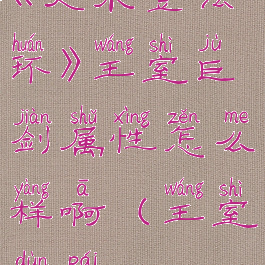 huán wáng shì jù
环》王室巨
jiàn shǔ xìng zěn me
剑属性怎么
yàng ā wáng shì
样啊(王室
dùn pái